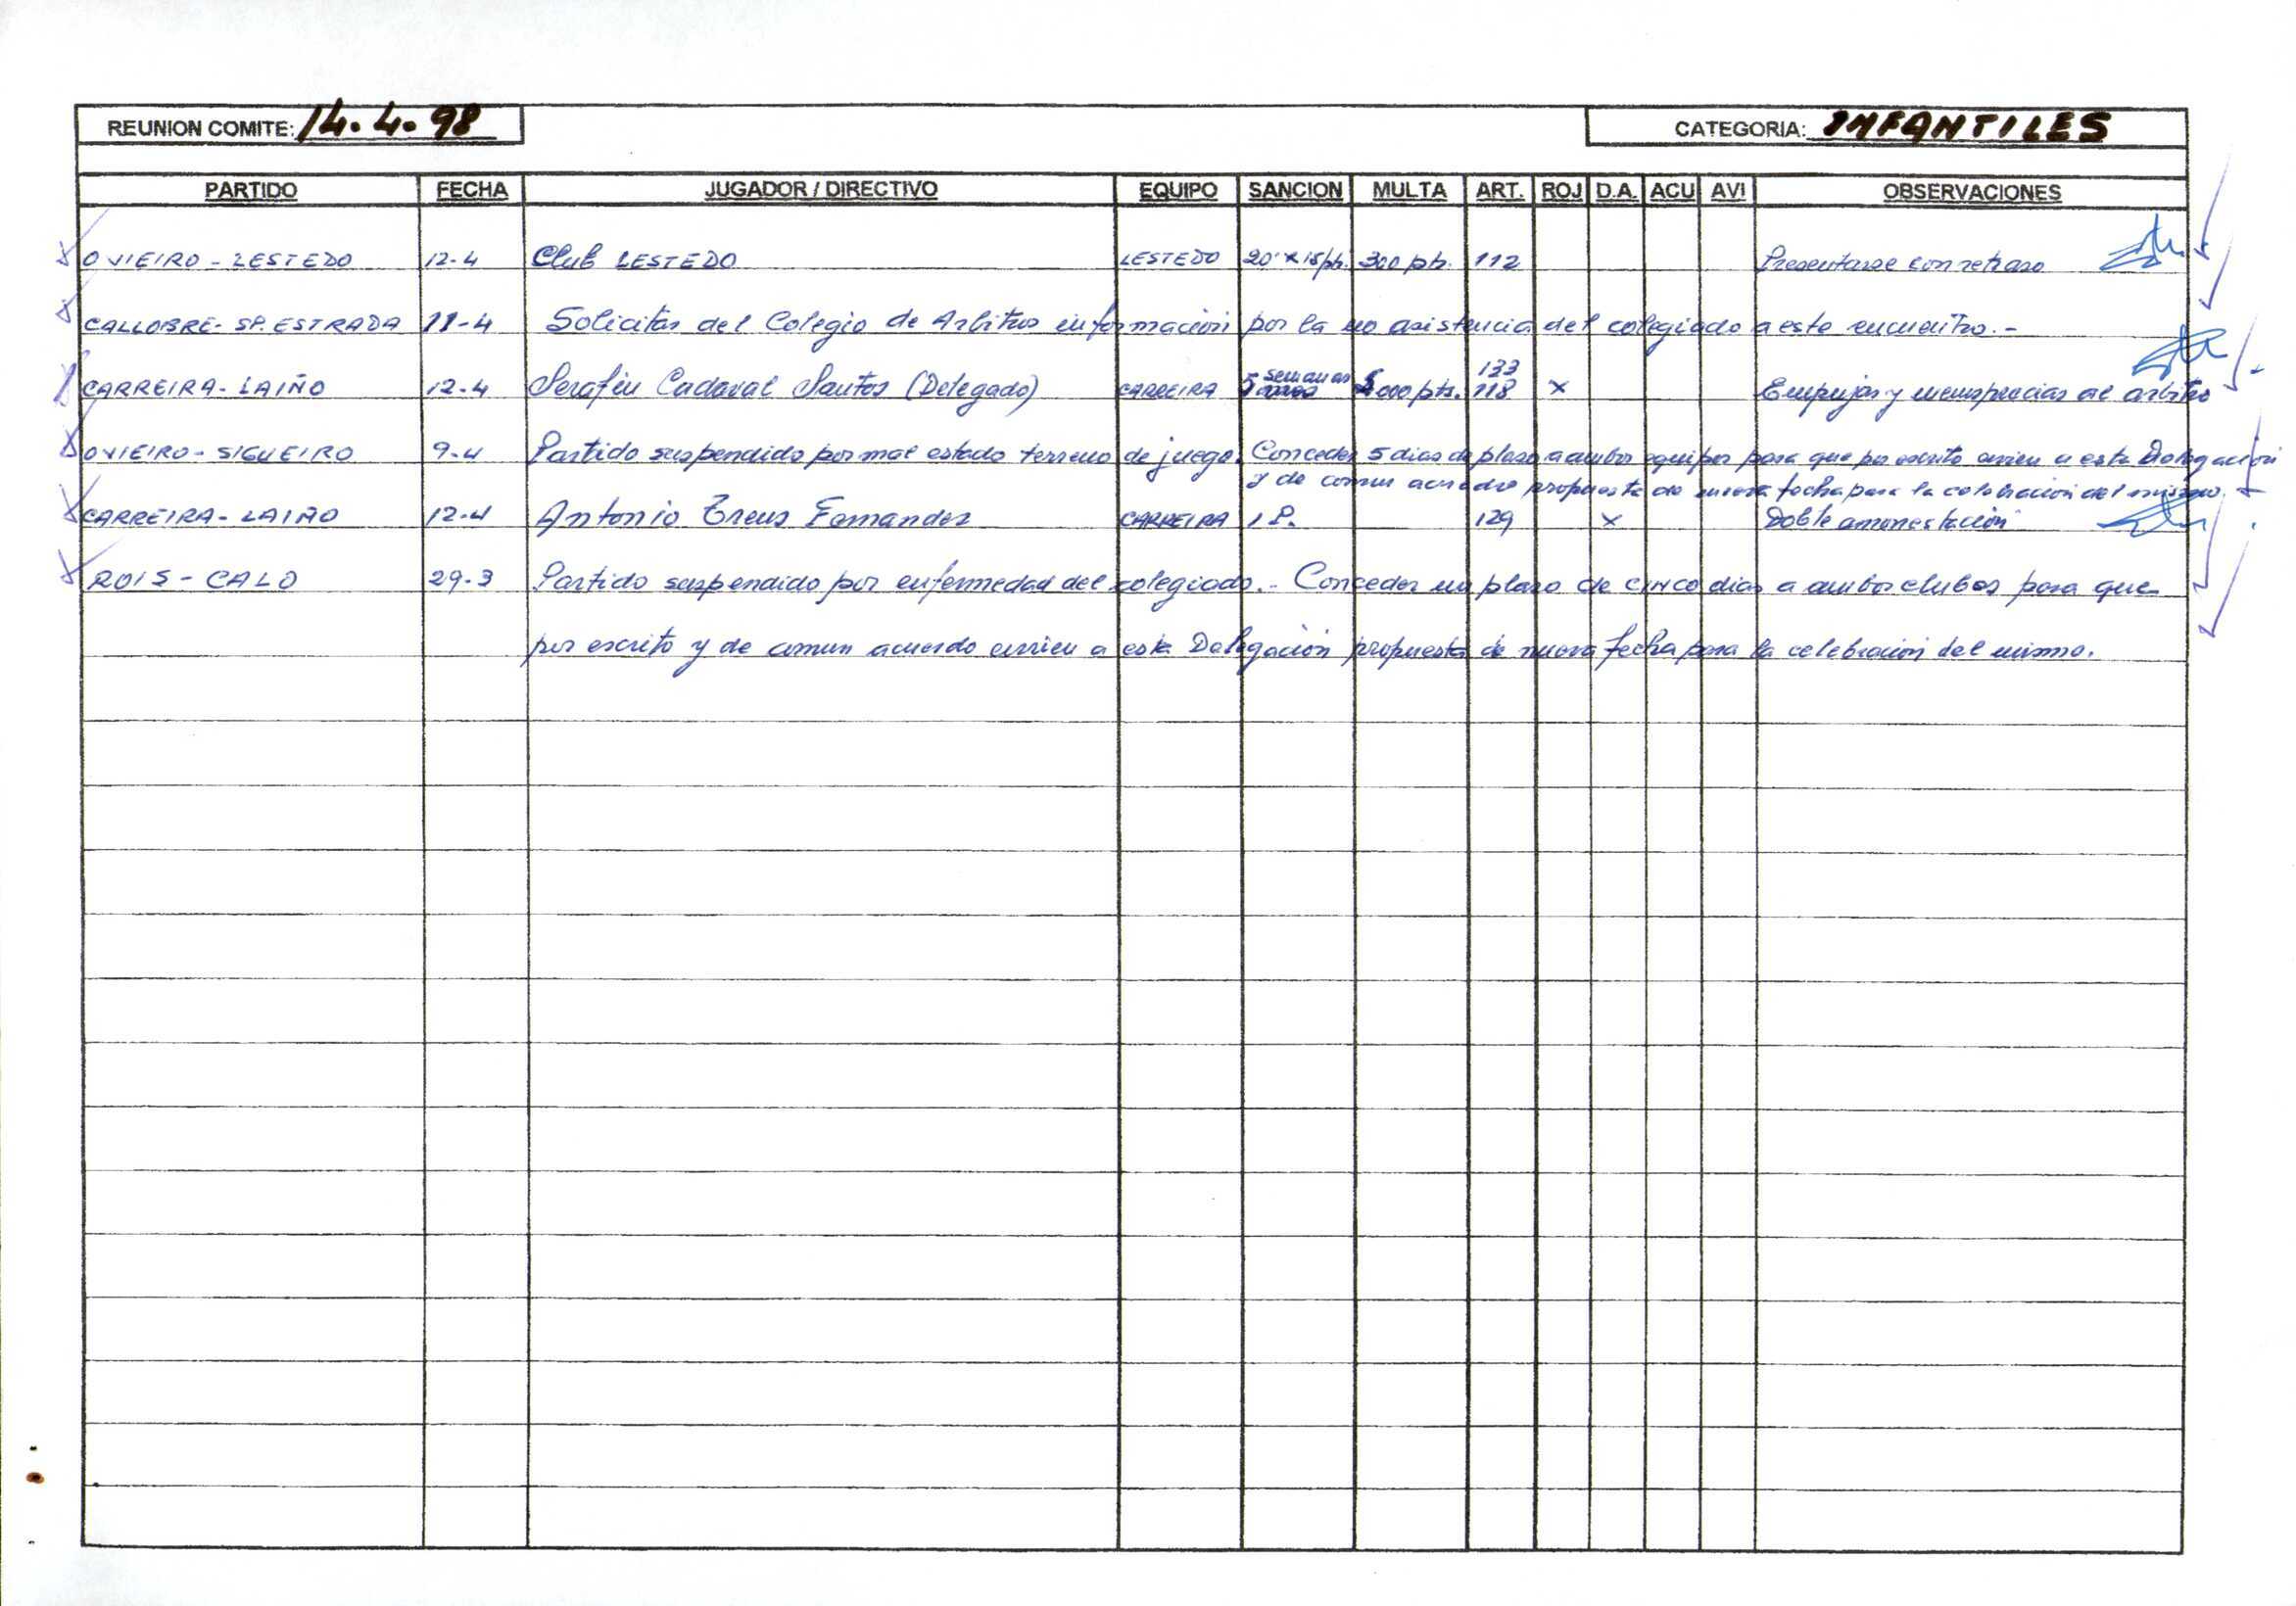 REUNION COMITE: 14.4.98 CATEGORIA: INFANTILES
PARTIDO FECHA JUGADOR / DIRECTIVO EQUIPO SANCION MULTA ART. ROJ D.A. ACU AVI OBSERVACIONES
OVIEIRO - LESTEDO 12-4 Club LESTEDO LESTEDO 20' x 15 pts. 300 pts. 112 Presentarse con retraso
CALLOBRE - SP. ESTRADA 11-4 Solicitar del Colegio de Arbitros información por la no asistencia del colegiado a este encuentro.-
semanas 133
CARREIRA - LAIÑO 12-4 Serafin Cadaval Santos (Delegado) CARREIRA 5 5000 pts. 118 x Empujar y menosprecias al arbitro
OVIEIRO - SIGUEIRO 9-4 Partido suspendido por mal estado terreno de juego. Conceder 5 dias de plazo a ambos equipos para que por escrito envien a esta Delegación
y de comun acuerdo propuesta de nueva fecha para la celebración del mismo.
CARREIRA - LAIÑO 12-4 Antonio Treus Fernandez CARREIRA 1 P. 129 x Doble amonestación
ROIS - CALO 29-3 Partido suspendido por enfermedad del colegiado.- Conceder un plazo de CINCO dias a ambos clubes para que
por escrito y de comun acuerdo envien a esta Delegación propuesta de nueva fecha para la celebración del mismo.